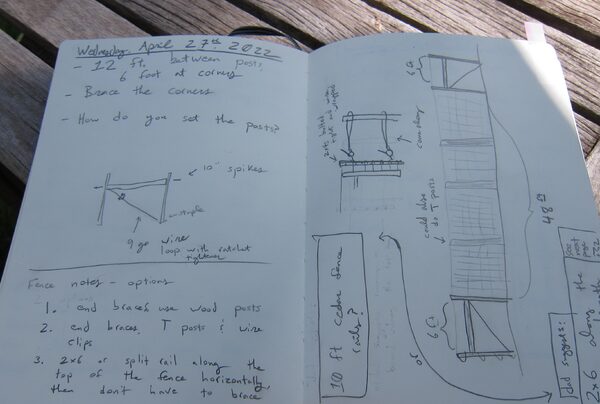 Wednesday, April 27th 2022
- 12 ft. between posts,
6 foot at corners
- Brace the corners
- How do you set the posts?
10" spikes
staple
9 ga wire
loop with ratchet
tightener
Fence notes - options
1. end braces use wood posts
2. end braces, T posts & wire
clips
3. 2x6 or split rail along the
top of the fence horizontally,
then don't have to brace
6 ft
could also
do T posts
48 ft
6 ft
10 ft cedar fence
rails?
or
see
next
page
dad suggests:
2x6 along the